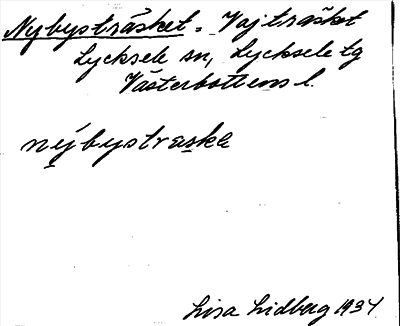 Nybysträsket = Vajträsket
Lycksele sn, Lycksele tg
Västerbottens l.
nýbystraska
Lisa Lidberg 1934